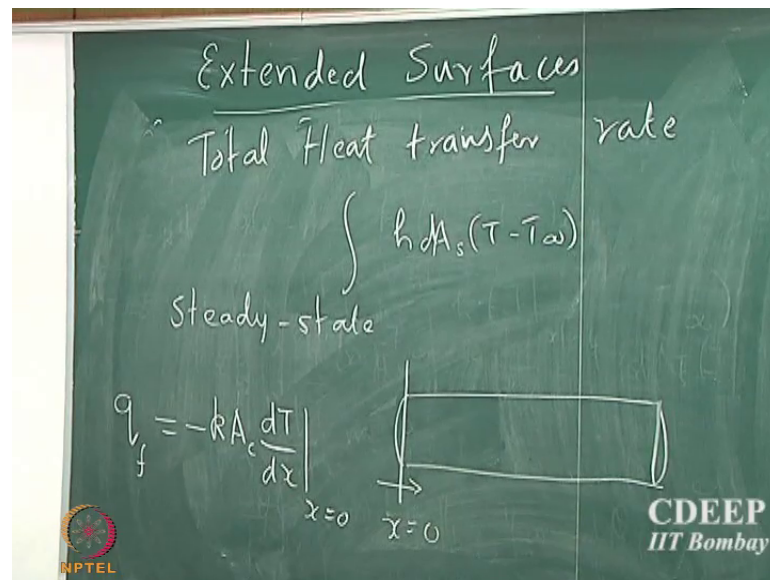 Extended Surfaces
Total Heat transfer rate
∫ h dA_s (T - T∞)
Steady-state
q_f = -kA_c dT/dx |_{x=0}
x=0
CDEEP
IIT Bombay
NPTEL